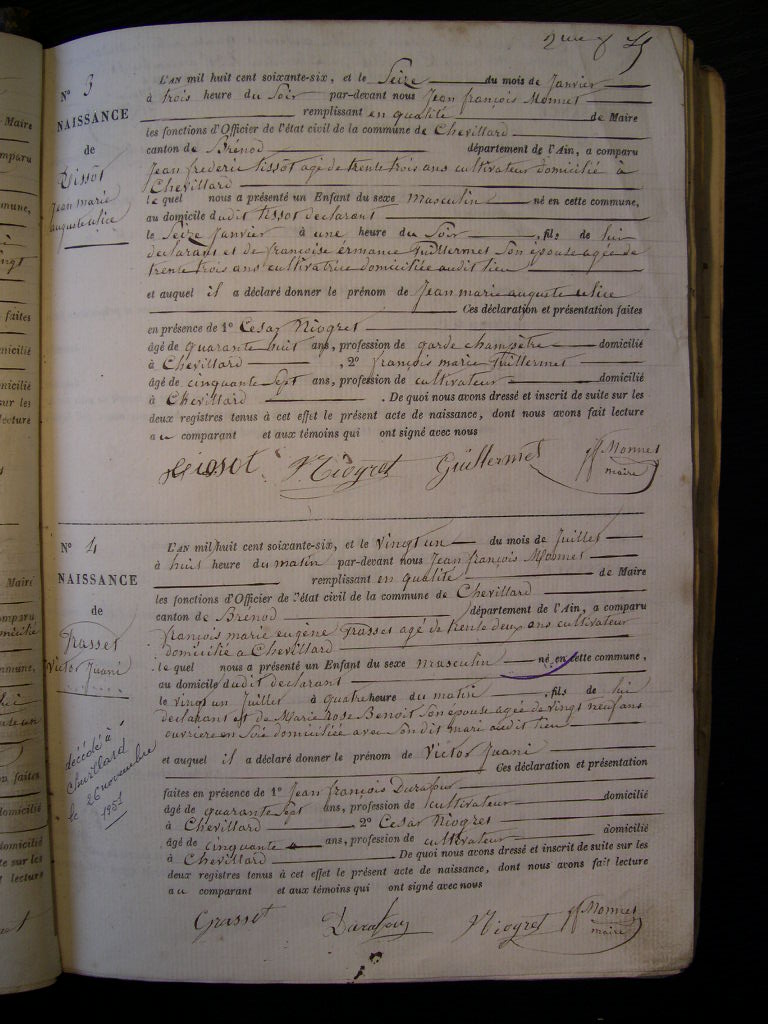 2me f
N° 3
NAISSANCE
de
Tissot
Jean marie
auguste
L'AN mil huit cent soixante-six, et le Seize du mois de Janvier
à trois heure du Soir par-devant nous Jean françois Monnet
remplissant en qualité de Maire
les fonctions d'Officier de l'état civil de la commune de Chevillard
canton de Brenod département de l'Ain, a comparu
Jean frederic tissot agé de trente trois ans cultivateur domicilié à
Chevillard
le quel nous a présenté un Enfant du sexe masculin né en cette commune,
au domicile dudit tissot declarant
le Seize Janvier à une heure du Soir , fils de lui
declarant et de francoise ermance Guillermet Son épouse agée de
trente trois ans cultivatrice domiciliée audit lieu
et auquel il a déclaré donner le prénom de Jean marie auguste
Ces déclaration et présentation faites
en présence de 1° Cesar Niogret
âgé de quarante huit ans, profession de garde champêtre domicilié
à Chevillard , 2° françois marie Guillermet
âgé de cinquante Sept ans, profession de cultivateur domicilié
à Chevillard . De quoi nous avons dressé et inscrit de suite sur les
deux registres tenus à cet effet le présent acte de naissance, dont nous avons fait lecture
au comparant et aux témoins qui ont signé avec nous
Tissot Niogret Guillermet Monnet
maire
N° 4
NAISSANCE
de
Grasset
Victor Juani
décédé à
Chevillard
le 26 novembre
1951
L'AN mil huit cent soixante-six, et le vingt un du mois de Juillet
à huit heure du matin par-devant nous Jean françois Monnet
remplissant en qualité de Maire
les fonctions d'Officier de l'état civil de la commune de Chevillard
canton de Brenod département de l'Ain, a comparu
françois marie eugène Grasset agé de trente deux ans cultivateur
domicilié a Chevillard
le quel nous a présenté un Enfant du sexe masculin né en cette commune,
au domicile dudit declarant
le vingt un Juillet à quatre heure du matin , fils de lui
declarant et de Marie rose Benoit Son épouse agée de vingt neuf ans
ouvriere en Soie domiciliée avec Sondit mari audit lieu
et auquel il a déclaré donner le prénom de Victor Juani
Ces déclaration et présentation
faites en présence de 1° Jean françois Durafour
âgé de quarante Sept ans, profession de Cultivateur domicilié
à Chevillard 2° Cesar Niogret
âgé de cinquante ans, profession de cultivateur domicilié
à Chevillard De quoi nous avons dressé et inscrit de suite sur les
deux registres tenus à cet effet le présent acte de naissance, dont nous avons fait lecture
au comparant et aux témoins qui ont signé avec nous
Grasset Durafour Niogret Monnet
maire